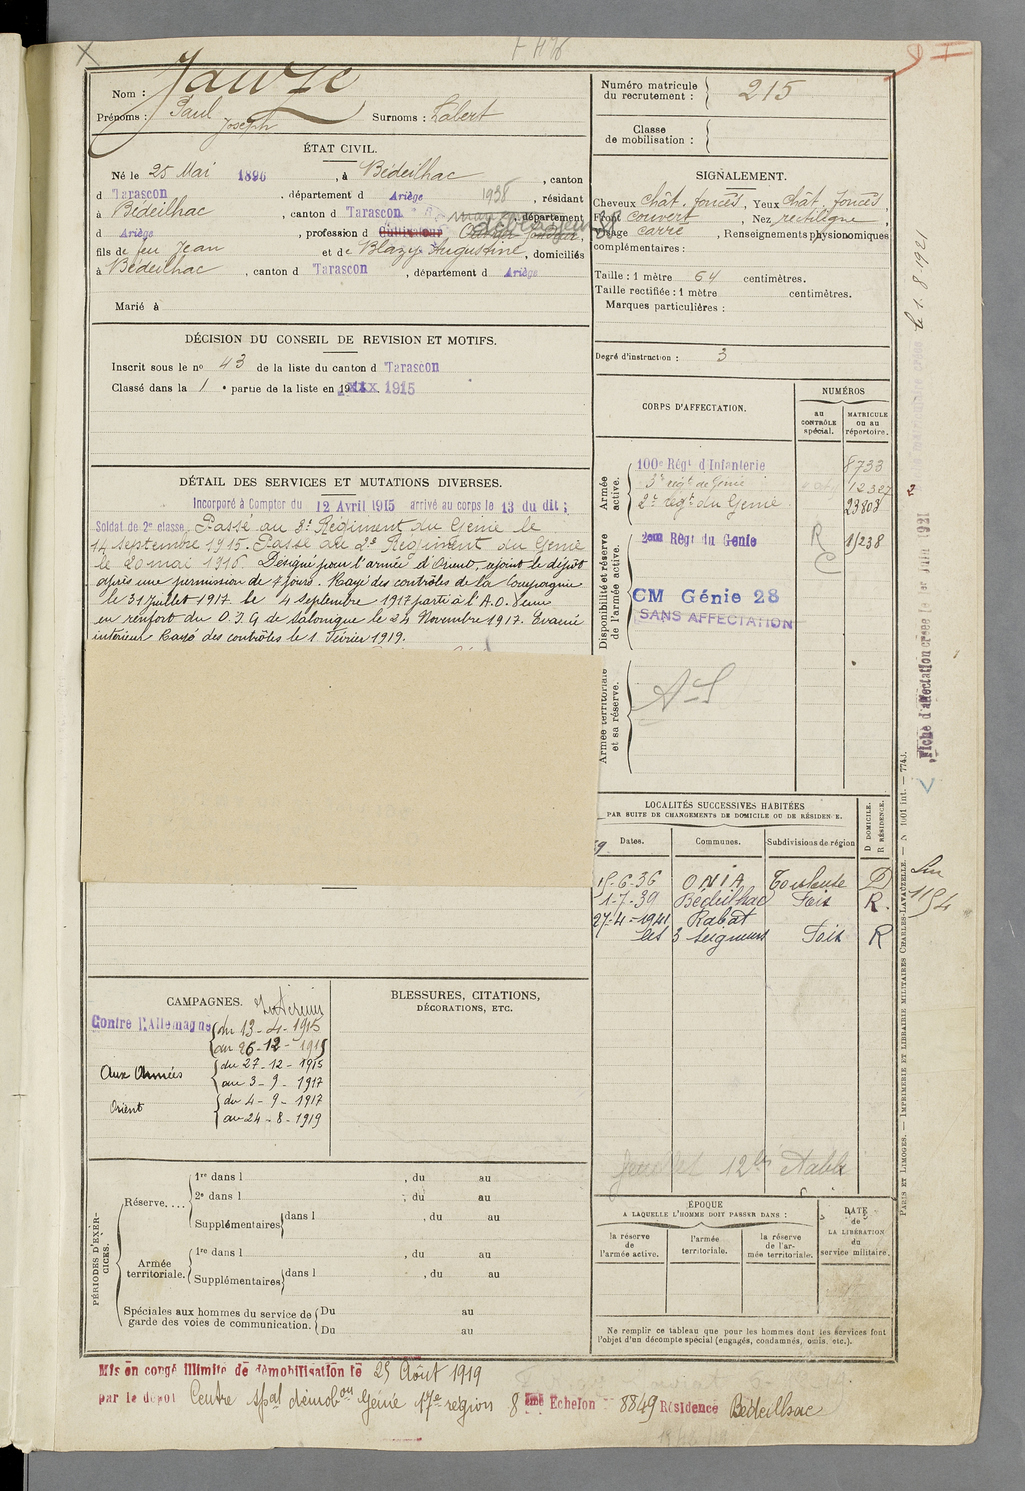 Nom : Jauze
Prénoms : Paul Joseph
Surnoms : Labert
ÉTAT CIVIL.
Né le 25 Mai 1896, à Bédeilhac, canton
d Tarascon, département d Ariège 1938, résidant
à Bédeilhac, canton d Tarascon, département
d Ariège, profession d Cultivateur
fils de feu Jean et de Blazy Augustine, domiciliés
à Bédeilhac, canton d Tarascon, département d Ariège
Marié à
DÉCISION DU CONSEIL DE REVISION ET MOTIFS.
Inscrit sous le nº 43 de la liste du canton d Tarascon
Classé dans la 1e partie de la liste en 1915
DÉTAIL DES SERVICES ET MUTATIONS DIVERSES.
Incorporé à Compter du 12 Avril 1915 arrivé au corps le 13 du dit ;
Soldat de 2e classe, Passé au 3e Régiment du Génie le
14 septembre 1915. Passé au 2e Régiment du Génie
le 20 mai 1916. Désigné pour l'armée d'Orient, rejoint le dépôt
après une permission de 7 jours. Rayé des contrôles de la Compagnie
le 31 juillet 1917. le 4 Septembre 1917 parti à l'A.O. Venu
en renfort du D.I.G de Salonique le 24 Novembre 1917. Evacué
intérieur Rayé des contrôles le 1 Février 1919.
CAMPAGNES.
Contre l'Allemagne
Intérieur
du 13-4-1915
au 26-12-1915
Aux Armées
du 27-12-1915
au 3-9-1917
Orient
du 4-9-1917
au 24-8-1919
BLESSURES, CITATIONS,
DÉCORATIONS, ETC.
PÉRIODES D'EXERCICES.
Réserve....
1re dans l , du au
2e dans l , du au
Supplémentaires dans l , du au
Armée territoriale.
1re dans l , du au
Supplémentaires dans l , du au
Spéciales aux hommes du service de
garde des voies de communication.
Du au
Du au
Mis en congé illimité de démobilisation le 25 Août 1919
par le dépôt Centre spal démobon Génie 17e région 8 ème Echelon 8849 Résidence Bédeilhac
Numéro matricule
du recrutement : 215
Classe
de mobilisation :
SIGNALEMENT.
Cheveux chât. foncés, Yeux chât. foncés,
Front couvert, Nez rectiligne,
Visage carré, Renseignements physionomiques
complémentaires :
Taille : 1 mètre 64 centimètres.
Taille rectifiée : 1 mètre centimètres.
Marques particulières :
Degré d'instruction : 3
CORPS D'AFFECTATION.
NUMÉROS
AU CONTRÔLE spécial.
MATRICULE OU AU répertoire.
Armée active.
100e Régt d'Infanterie 8733
3e régt de Génie 12327
2e régt du Génie 23808
Disponibilité et réserve de l'armée active.
2eme Régt du Génie 15238
R
C
CM Génie 28
SANS AFFECTATION
Armée territoriale et sa réserve.
A-S
LOCALITÉS SUCCESSIVES HABITÉES
PAR SUITE DE CHANGEMENTS DE DOMICILE OU DE RÉSIDENCE.
D DOMICILE.
R RÉSIDENCE.
Dates. Communes. Subdivisions de région
15-6-36 ONIA Toulouse D
1-7-39 Bédeilhac Foix R.
27-4-1941 Rabat
les 3 seigneurs Foix R
ÉPOQUE
A LAQUELLE L'HOMME DOIT PASSER DANS :
la réserve de l'armée active.
l'armée territoriale.
la réserve de l'armée territoriale.
DATE de LA LIBÉRATION du service militaire.
Ne remplir ce tableau que pour les hommes dont les services font
l'objet d'un décompte spécial (engagés, condamnés, omis, etc.).
le 1-8-1921
Fiche d'affectation créée le 1er Juin 1921
1154
PARIS ET LIMOGES. — IMPRIMERIE ET LIBRAIRIE MILITAIRES CHARLES-LAVAUZELLE. — N 1001 int. — 774J.